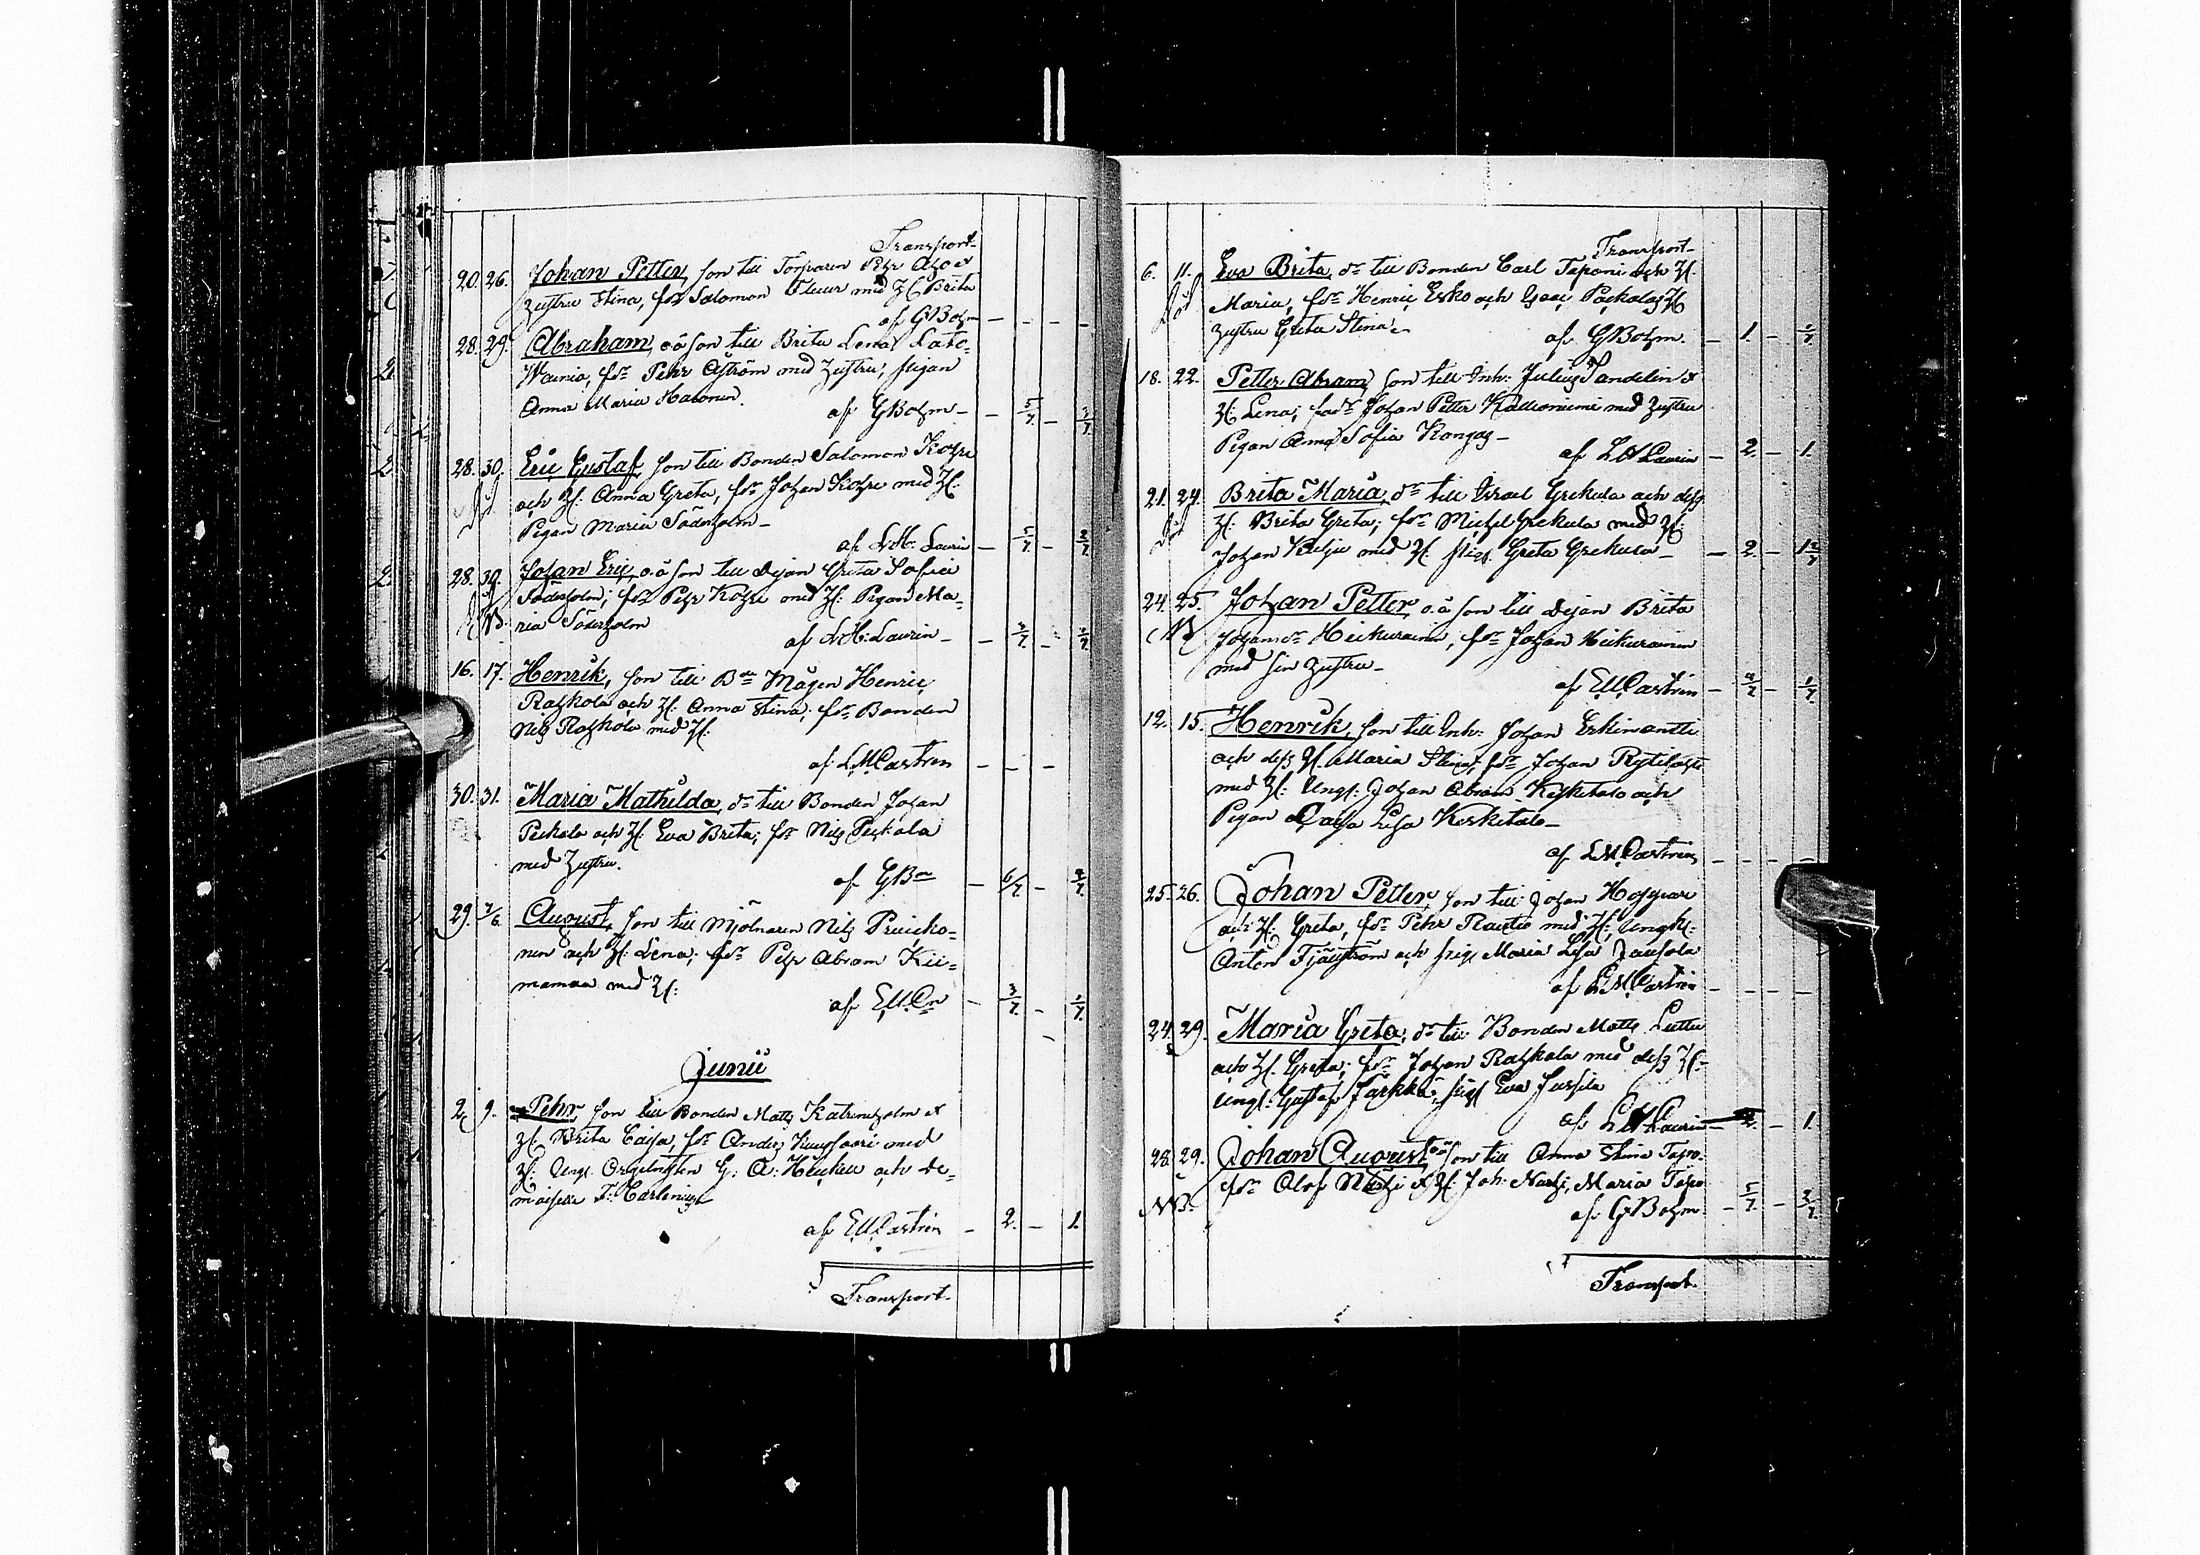 Transport
20. 26. Johan Petter, son till Torparen Pehr Aho et
Hustru Stina, fdr Salomon Fluur med H. Brita
af GBohm — — — —
28. 29. Abraham, o.ä son till Brita Lena Lato-
Wainio, fdr Pehr Åström med Hustru, pigan
Anna Maria Halonen.
af GBohm — 5/7 — 2/7
28. 30. Eric Gustaf, son till Bonden Salomon Kohre
och H: Anna Greta, fdr Johan Kohre med H:
Pigan Maria Söderholm —
af L.H. Laurin — 5/7 — 2/7
28. 30. Johan Eric, o.ä son till Dejan Greta Sofia
Söderholm; fdr Pehr Kohre med H: Pigan Ma-
NB. ria Söderholm
af L.H. Laurin — 3/7 — 2/7
16. 17. Henrik, son till Bn Mågen Henric
Raskola och H: Anna Stina; fdr Bonden
Nils Raskola med H:
af L.M.Castren — — —
30. 31. Maria Mathilda, dr till Bonden Johan
Peckala och H: Eva Brita; fdr Nils Peckala
med Hustru.
af GBm — 6/7 — 2/7
29. 2/6 August, son till Mjölnaren Nils Pruicko-
nen och H: Lena; fdr Pehr Abram Kii-
mamaa med H:
af E.U.Cn — 3/7 — 1/7
Junii
2. 9. Pehr, son till Bonden Matts Katrineholm et
H: Brita Caisa, fdr Anders Kuusaari med
H: Ungk. Orgelnisten G: A: Heickell och De-
moiselle F: Carlenius
af E.U.Castrén — 2. — 1.
Transport.
Transport
6. 11. Eva Brita, dr till Bonden Carl Taponi och H.
död Maria, fdr Henric Erko och Isaac Packalas H
Hustru Greta Stina
af GBohm. — 1. —
18. 22. Petter Abram, son till Inh: Julius Sandelin et
H: Lena; fadr Johan Petter Kallioniemi med Hustru
Pigan Anna Sofia Kongas —
af L.H.Laurin — 2. — 1.
21. 24. Brita Maria, dr till Israel Grekula och dess
död H: Brita Greta; fdr Michel Grekula med H:
Johan med H. pig. Greta Grekula — — 2. —
24. 25. Johan Petter, o.ä son till Dejan Brita
NB Johansdr Heikurainen, fdr Johan Heikurainen
med sin Hustru —
af E.U.Castrén — 4/7 — 1/7
12. 15. Henrik, son till Inh: Johan Erkinantti
och dess H. Maria Stina, fdr Johan Rytilahti
med H: Ungk: Johan Abram Keskitalo och
Pigan Caisa Lisa Keskitalo —
af L.M.Castrén — — — —
25. 26. Johan Petter, son till Johan
och H: Greta, fdr Pehr Rautio med H:, Ungk:
Anton och pig: Maria Lisa
af L.M.Castrén — — — —
24. 29. Maria Greta, dr till Bonden Matts
och H. Greta; fdr Johan Raskala med dess H.
Ungk: Gustaf Jarkko, pig Eva
af L.H.Laurin — 2. — 1.
28. 29. Johan August o.ä son till Anna Stina Tapo.
fdr Olof Narhi et H: Joh: Narhi, Maria Tapo
NB. af GBohm. — 5/7 — 2/7
Transport.